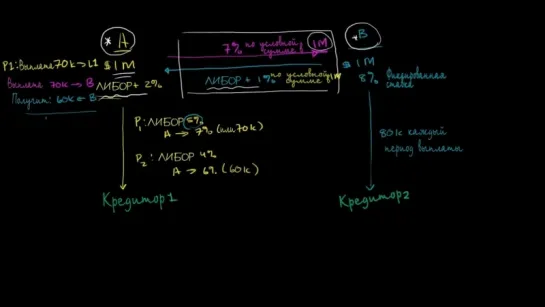 * A
P1: Выплата 70k → L1
$ 1M
Выплата 70k → B
ЛИБОР + 2%
Получит: 60k ← B
7% по условной сумме в 1M
ЛИБОР + 1% по условной сумме в
* B
$ 1M
8% Фиксированная ставка
P1: ЛИБОР 5%
A → 7% (или 70k)
P2: ЛИБОР 4%
A → 6% (60k)
80k каждый
период выплаты
Кредитор 1
Кредитор 2